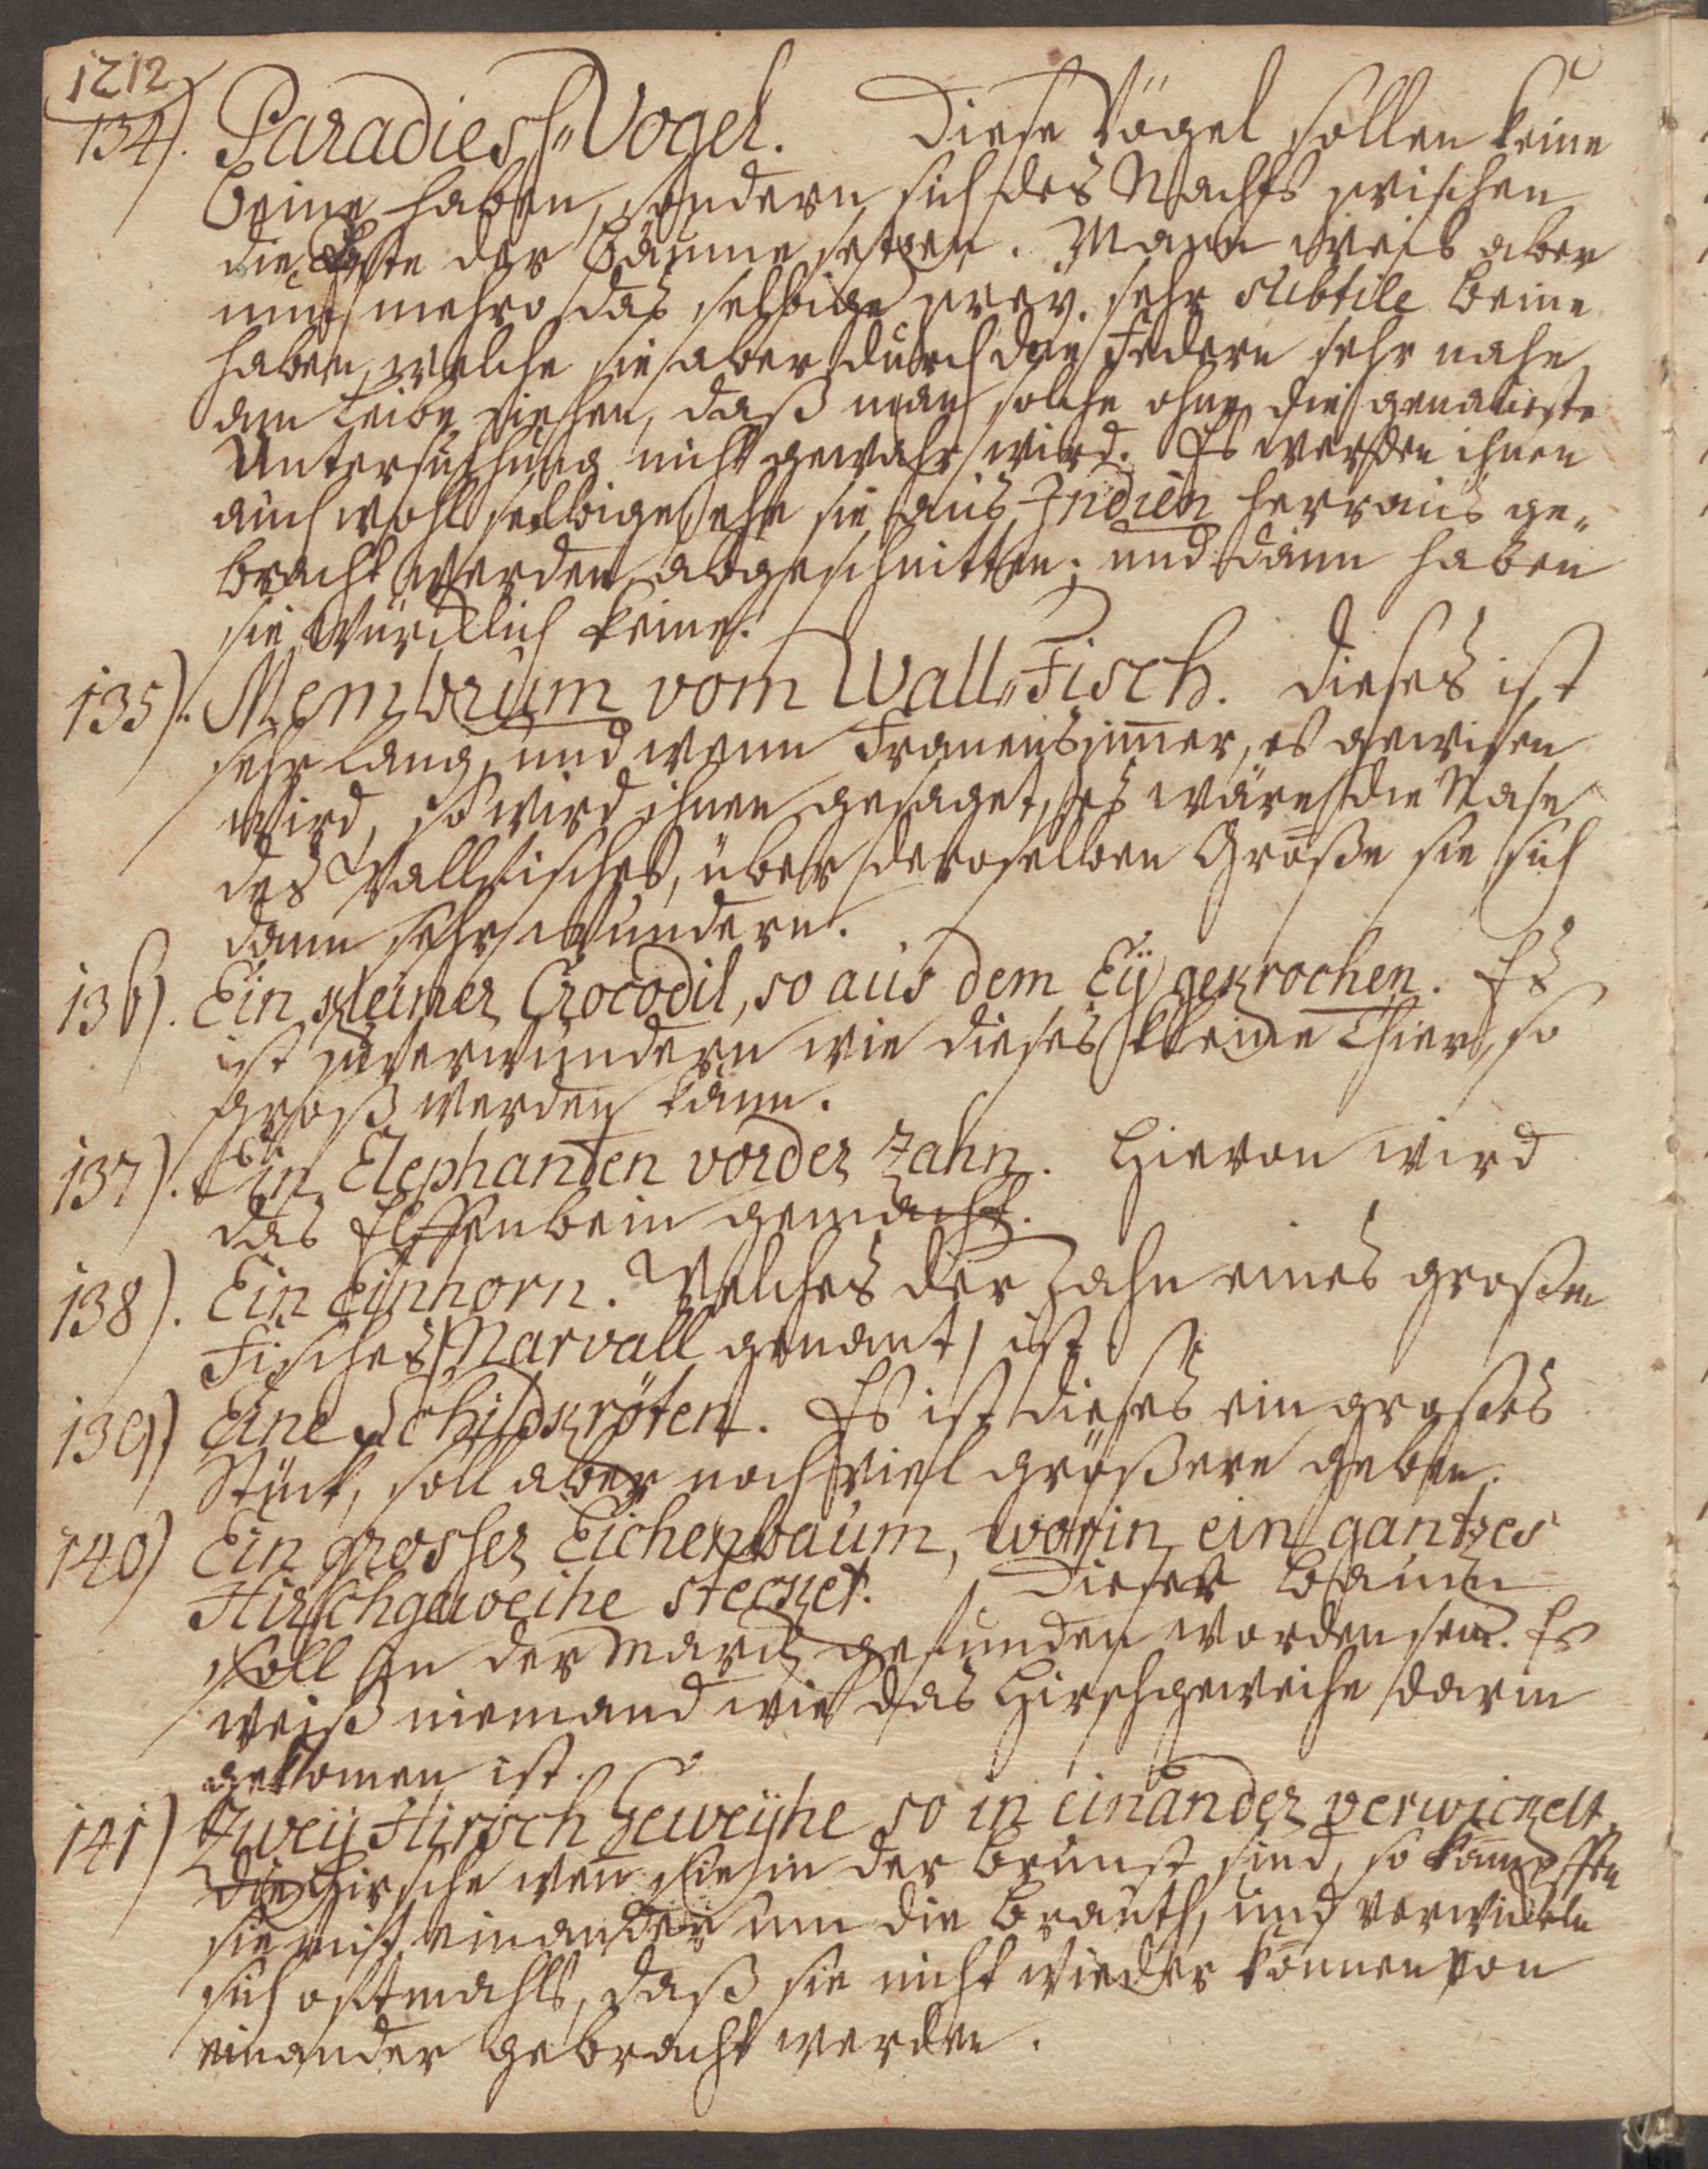 1212
134). Paradies„Vogel. Diese Vögel sollen keine
beine haben, sondern sich des Nachts zwischen
die Äste der Bäume setzen. Mann weis aber
nun mehro das selbige zwey sehr subtile beine
haben, welche sie aber durch die Federn sehr nahe
am Leibe ziehen, daß man solche ohne die genaueste
Untersuchung nicht gewahr wird. Es werden ihnen
auch wohl selbige, ehe sie aus Indien herraus ge-
bracht werden abgeschnitten; und dann haben
sie würcklich keine.
135). Membrum vom Wall„Fisch. Dieses ist
sehr lang, und wenn Frauenszimer, es gewisen
wird, so wird ihnen gesaget, es wäre die Nase
des Wallfisches, über deroselben Größe sie sich
dann sehr wundern.
136). Ein kleiner Crocodil, so aus dem Eÿ gekrochen. Es
ist zu verwundern wie dieses kleine Thier, so
groß werden kann.
137). Ein Elephanten vorder Zahn. Hievon wird
das Elffenbein gemacht.
138). Ein Einhorn. Welches der Zahn eines großen
Fisches Narvall genant, ist.
139) Eine Schildkröten. Es ist dieses ein großes
Stück, soll aber noch viel größere geben.
140) Ein grosser Eichenbaum, worin ein gantzes
Hirschgeweihe stecket. Dieser Baum
soll in der Marck gefunden worden sein. Es
weiß niemand wie das Hirschgeweihe darin
gekomen ist.
141) Zweÿ Hirsch Geweÿhe so in einander verwickelt.
Die Hirsche wen sie in der Brunst sind, so kämpffen
sie mit einander um die Brauth, und verwickeln
sich oftmahls, daß sie nicht wieder können von
einander gebracht werden.